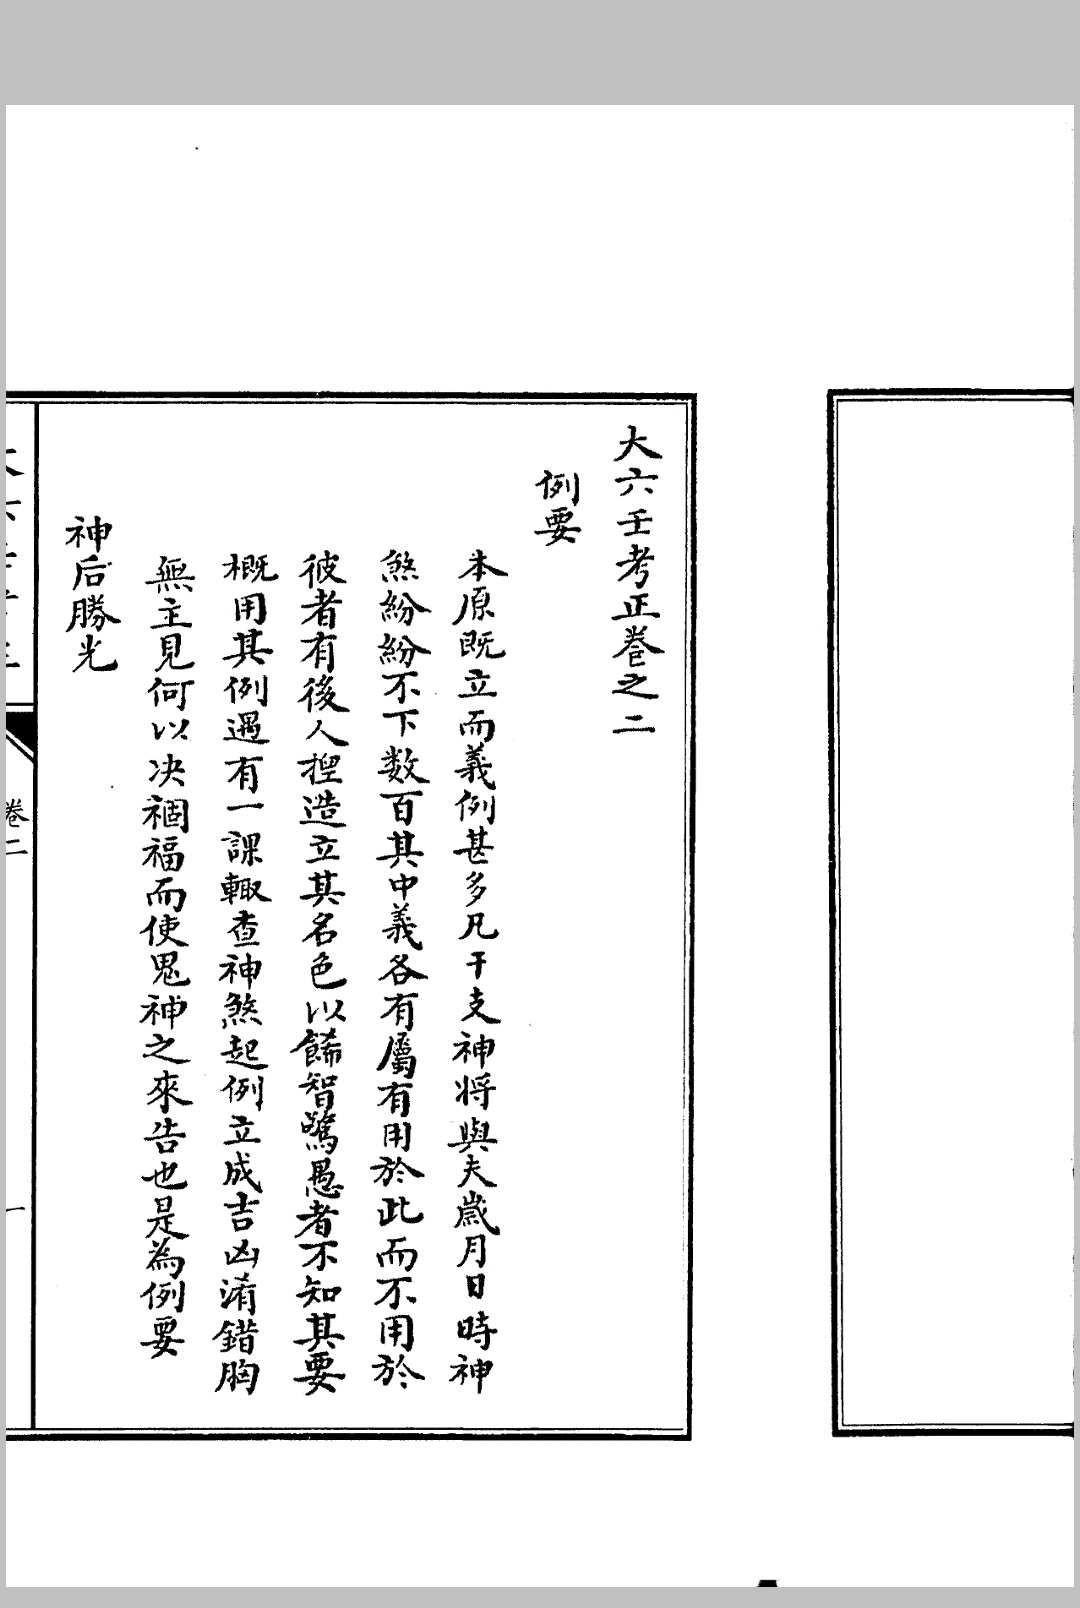 大六壬考正卷之二
例要
本原既立而義例甚多凡干支神将與夫歲月日時神
煞紛紛不下数百其中義各有屬有用於此而不用於
彼者有後人揑造立其名色以餙智驚愚者不知其要
概用其例遇有一課輙查神煞起例立成吉凶淆錯胸
無主見何以决禍福而使鬼神之來告也是為例要
神后勝光
卷二
一